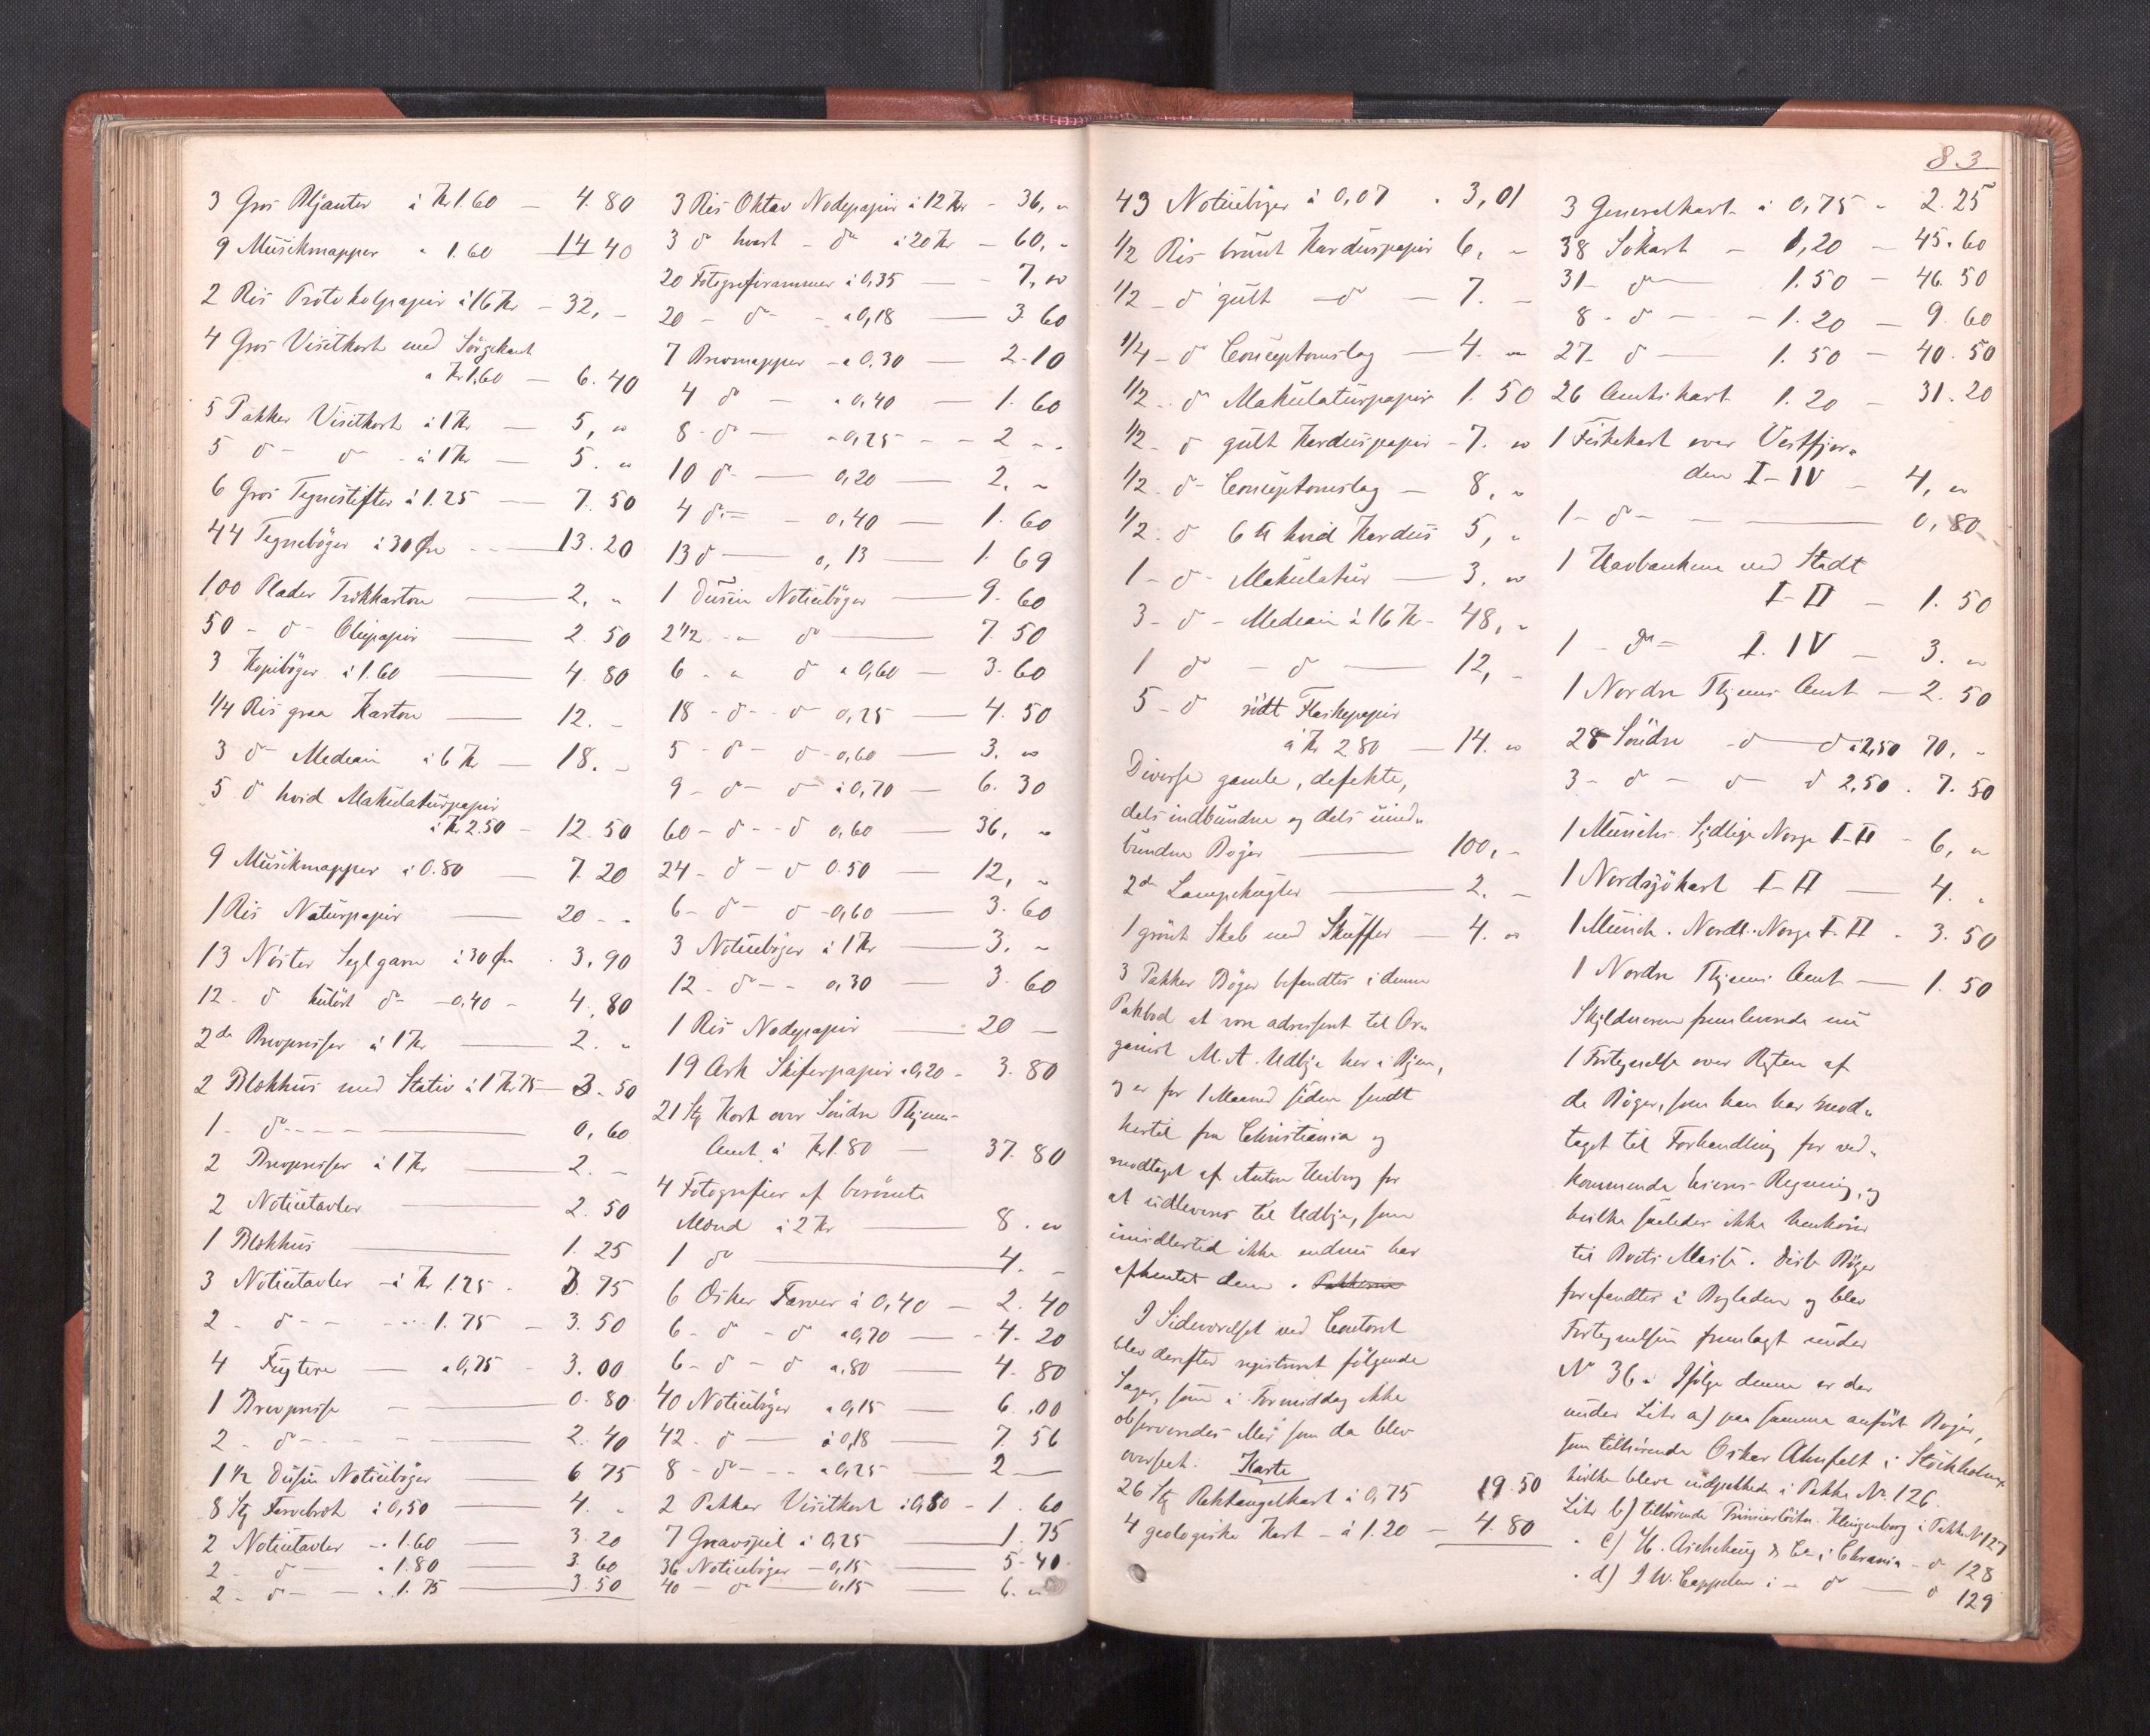 3 Gros à Kr 1.60 — 4.80
9 Musikmapper " 1.60 14 40
2 Ris Protokolpapir à 16 Kr – 32, –
4 Gros Visitkort med Sörgekant
à Kr 1.60 — 6.40
5 Pakker Visitkort à 1 Kr — 5, "
5 d° – d° – à 1 Kr — 5. "
6 Gros Tegnestifter à 1.25 — 7.50
44 Tegnebøger à 30 Øre — 13.20
100 Plader Trökkarton — 2, "
50 – d° – Oliepapir — 2.50
3 Kopibøger à 1.60 — 4.80
1/4 Ris graa Karton — 12. –
3 d° – Median à 6 Kr — 18. –
5 d° hvid Makulaturpapir
à Kr 2.50 – 12.50
9 Musikmapper à 0.80 — 7.20
1 Ris Naturpapir — 20 – –
13 Nöster Seglgarn à 30 Øre . 3,90
12 – d° kulört d° – 0,40 – 4,80
2de Brevpresser à 1 Kr — 2. "
2 Blækhus med Stativ à 1 Kr 75 – 3.50
1 – d° – – — 0,60
2 Brevpresser à 1 Kr — 2. –
2 Notitstavler — 2.50
1 Blækhus — 1.25
3 Notitstavler – à Kr 1.25 . 3.75
2 – d° – – 1.75 – 3.50
4 — à 0,75 – 3.00
1 Brevpresse — 0.80
2 – d° – – — 2.40
1 1/2 Dusin Notitsbøger — 6 75
8 Stk à 0,50 — 4. "
2 Notitstavler – 1.60 — 3.20
2 – d° – " 1.80 — 3.60
2 – d° – " 1.75 — 3.50
3 Ris Oktav Nodepapir à 12 Kr – 36, "
3 d° kvart – d° à 20 Kr – 60, "
20 Fotografirammer à 0,35 — 7, "
20 – d° – à 0,18 — 3.60
7 Brevmapper – à 0,30 — 2.10
4 d° — à 0,40 — 1.60
8 – d° — à 0,25 — 2 –
10 d° — 0,20 — 2, "
4 d° – 0,40 — 1.60
13 d° — 0,13 — 1.69
1 Dusin Notitsbøger — 9.60
2 1/2 – " d° — 7.50
6 – " d° à 0,60 — 3.60
18 – d° – d° 0,25 — 4.50
5 – d° – d° – 0,60 — 3. "
9 – d° – d° à 0,70 — 6.30
60 – d° – d° 0,60 — 36, "
24 – d° – d° 0.50 — 12, "
6 – d° – d° – 0,60 — 3.60
3 Notitsbøger à 1 Kr — 3. "
12 – d° – – 0,30 — 3.60
1 Ris Nodepapir — 20 —
19 Ark Skiferpapir à 0,20 – 3.80
21 Stk Kort over Söndre Thjems
Amt à Kr 1.80 — 37.80
4 Fotografier af berömte
Mænd à 2 Kr — 8. "
1 d° — 4. –
6 Æsker Farver à 0,40 – 2.40
6 – d° – d° à 0,70 — 4.20
6 – d° – d° à ,80 — 4.80
40 Notitsbøger à 0,15 — 6.00
42 – d° — à 0,18 — 7.56
8 – d° – – à 0,25 — 2 —
2 Pakker Visitkort à 0,80 – 1.60
7 Gnavspil à 0,25 — 1.75
36 Notitsbøger – 0,15 — 5.40
40 – d° — 0,15 — 6. "
83
43 Notitsbøger à 0,07 . 3,01
1/2 Ris brunt Karduspapir 6, –
1/2 – d° gult – d° — 7. –
1/4 – d° Conceptomslag — 4. "
1/2 – d° Makulaturpapir 1.50
1/2 – d° gult Karduspapir – 7. "
1/2 – d° Conceptomslag — 8, "
1/2 – d° 6 ℔ hvid Kardus 5, "
1 – d° – Makulatur — 3. "
3 – d° – Median à 16 Kr – 48, "
1 d° – d° — 12, –
5 – d° rödt Flaskepapir
à Kr 2.80 — 14. "
Diverse gamle, defekte,
dels indbundne og dels uind-
bundne Bøger — 100, –
2de Lampekugler — 2. –
1 grönt Skab med Skuffer — 4. "
3 Pakker Bøger befandtes i denne
Pakbod at være adresseret til Or-
ganist M. A. Udbye her i Byen,
og er for 1 Maaned siden sendt
hertil fra Christiania og
modtaget af Anton for
at udleveres til Udbye, som
imidlertid ikke endnu har
afhentet dem. Pakkerne
I Sideværelset ved Contoret
blev derefter registreret følgende
Sager, som i Formiddag ikke
observeredes som da blev
overseet. Karte
26 Stk Rektangelkart à 0,75 19.50
4 geologiske Kart – à 1.20 – 4.80
3 Generalkart – à 0,75 – 2.25
38 Sökart – 1,20 – 45.60
31 – d° — 1.50 – 46.50
8 – d° – – 1.20 — 9.60
27 – d° – 1.50 – 40.50
26 Amtskart 1.20 – 31.20
1 Fiskekart over Vestfjor-
den I–IV – 4, "
1 – d° – — 0,80
1 Havbankerne ved Stadt
I–II – 1.50
1 – d° – I–IV – 3. "
1 Nordre Thjems Amt – 2.50
28 Söndre – d° — d° à 2,50 70, "
3 – d° – d° d° 2,50 . 7.50
1 Munchs Sydlige Norge I–II – 6, "
1 Nordsjökart I–II — 4. "
1 Munch. Nordl. Norge I–II . 3.50
1 Nordre Thjems Amt — 1.50
Skyldneren fremleverede nu
1 Fortegnelse over Resten af
de Bøger, som han har mod-
taget til Forhandling for ved-
kommende Eieres Regning, og
hvilke saaledes ikke henhörer
til Boets Masse. Disse Bøger
forefandtes i Bogladen og blev
Fortegnelsen fremlagt under
N° 36. Ifølge denne er der
under Litr a) paa samme anført Bøger,
som tilhørende Oskar Ahnfelt i Stockholm
hvilke bleve indpakkede i Pakke N° 126.
Litr b) tilhørende Klingenberg i Pakke N° 127
" c) H. Aschehoug & Co i Chrania – d° 128
" d) J W. Cappelen i – d° — d° 129